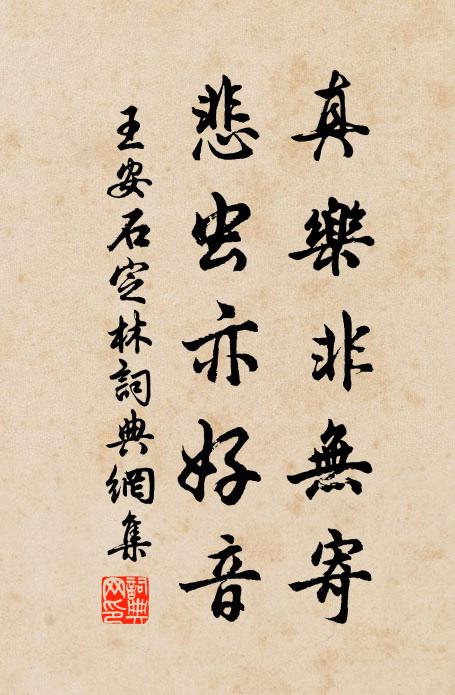 真樂非無寄
悲虫亦好音
王安石定林詞典網集
詞典網印